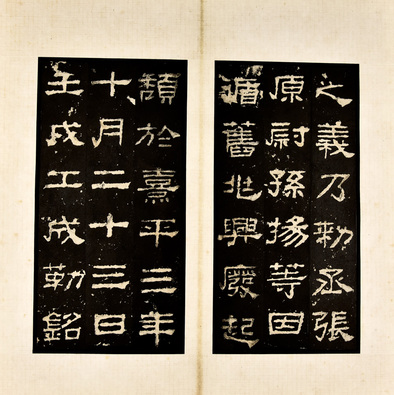 之義乃勑丞張
原尉孫揚等因
循舊兆興廢起
頹於熹平二年
十月二十三日
壬戌工成勒銘